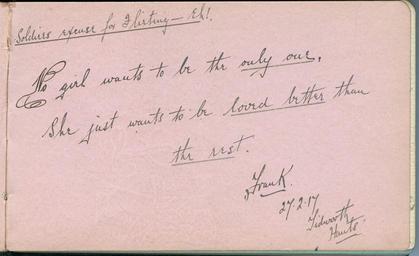 Soldiers excuse for Flirting — Eh!.
No girl wants to be the only one.
She just wants to be loved better than
the rest.
Frank.
27-2-17
Tidworth
Hants.